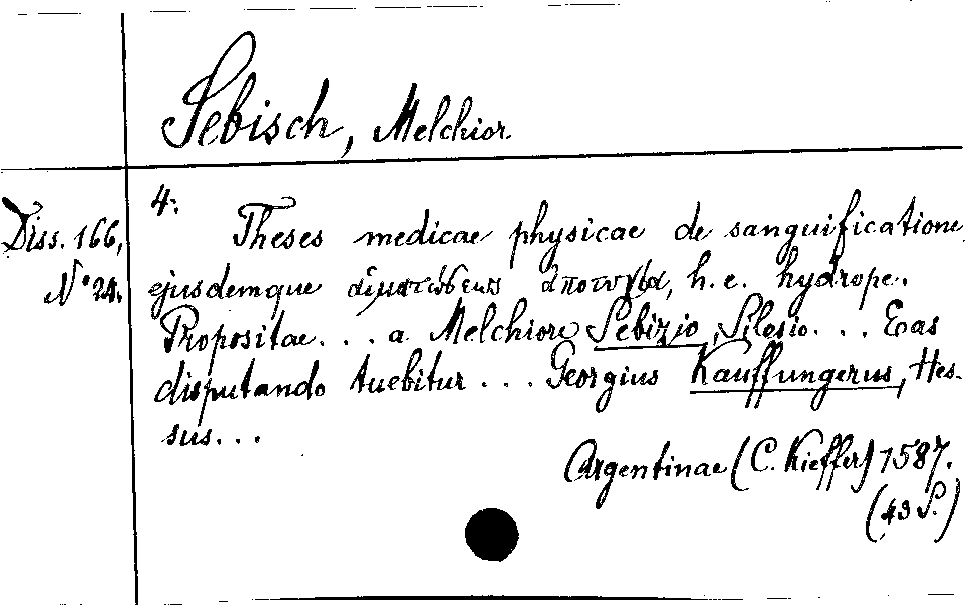 Sebisch, Melchior.
Diss. 166,
N° 24.
4:
Theses medicae physicae de sanguificatione
ejusdemque αἱματώσεως ἀποτυχία, h. e. hydrope.
Propositae... a Melchiore Sebizio, Silesio... Eas
disputando tuebitur... Georgius Kauffungerus, Hes-
sus...
Argentinae (C. Kieffer) 1587.
(43 S.)